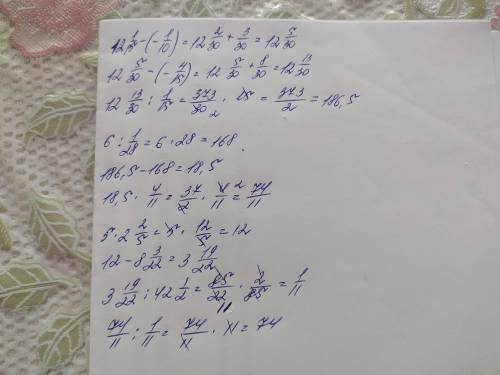 12 1/15 - (-1/10) = 12 2/30 + 3/30 = 12 5/30
12 5/30 - (-4/15) = 12 5/30 + 8/30 = 12 13/30
12 13/30 : 1/15 = 373/30 · 15 = 373/2 = 186,5
2
6 : 1/28 = 6 · 28 = 168
186,5 - 168 = 18,5
18,5 · 4/11 = 37/2 · 4/11 2 = 74/11
5 · 2 2/5 = 5 · 12/5 = 12
12 - 8 3/22 = 3 19/22
3 19/22 : 42 1/2 = 85/22 · 2/85 = 1/11
11
74/11 : 1/11 = 74/11 · 11 = 74